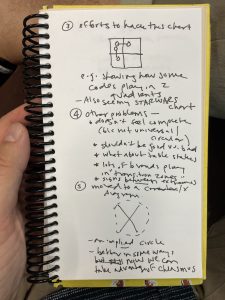 ③ efforts to hack this chart
e.g. showing how some
codes play in 2
quadrants
- Also see my STARWARS
chart
④ other problems -
* doesn't feel complete
(b/c not universal/
circular)
* shouldn't be good vs. bad
* what about table stakes
* lots of brands play
in transition zones -
* signs between extremes
⑤ moved to a
diagram
- an implied circle
- better in some ways
but
take advantage of chiasmos